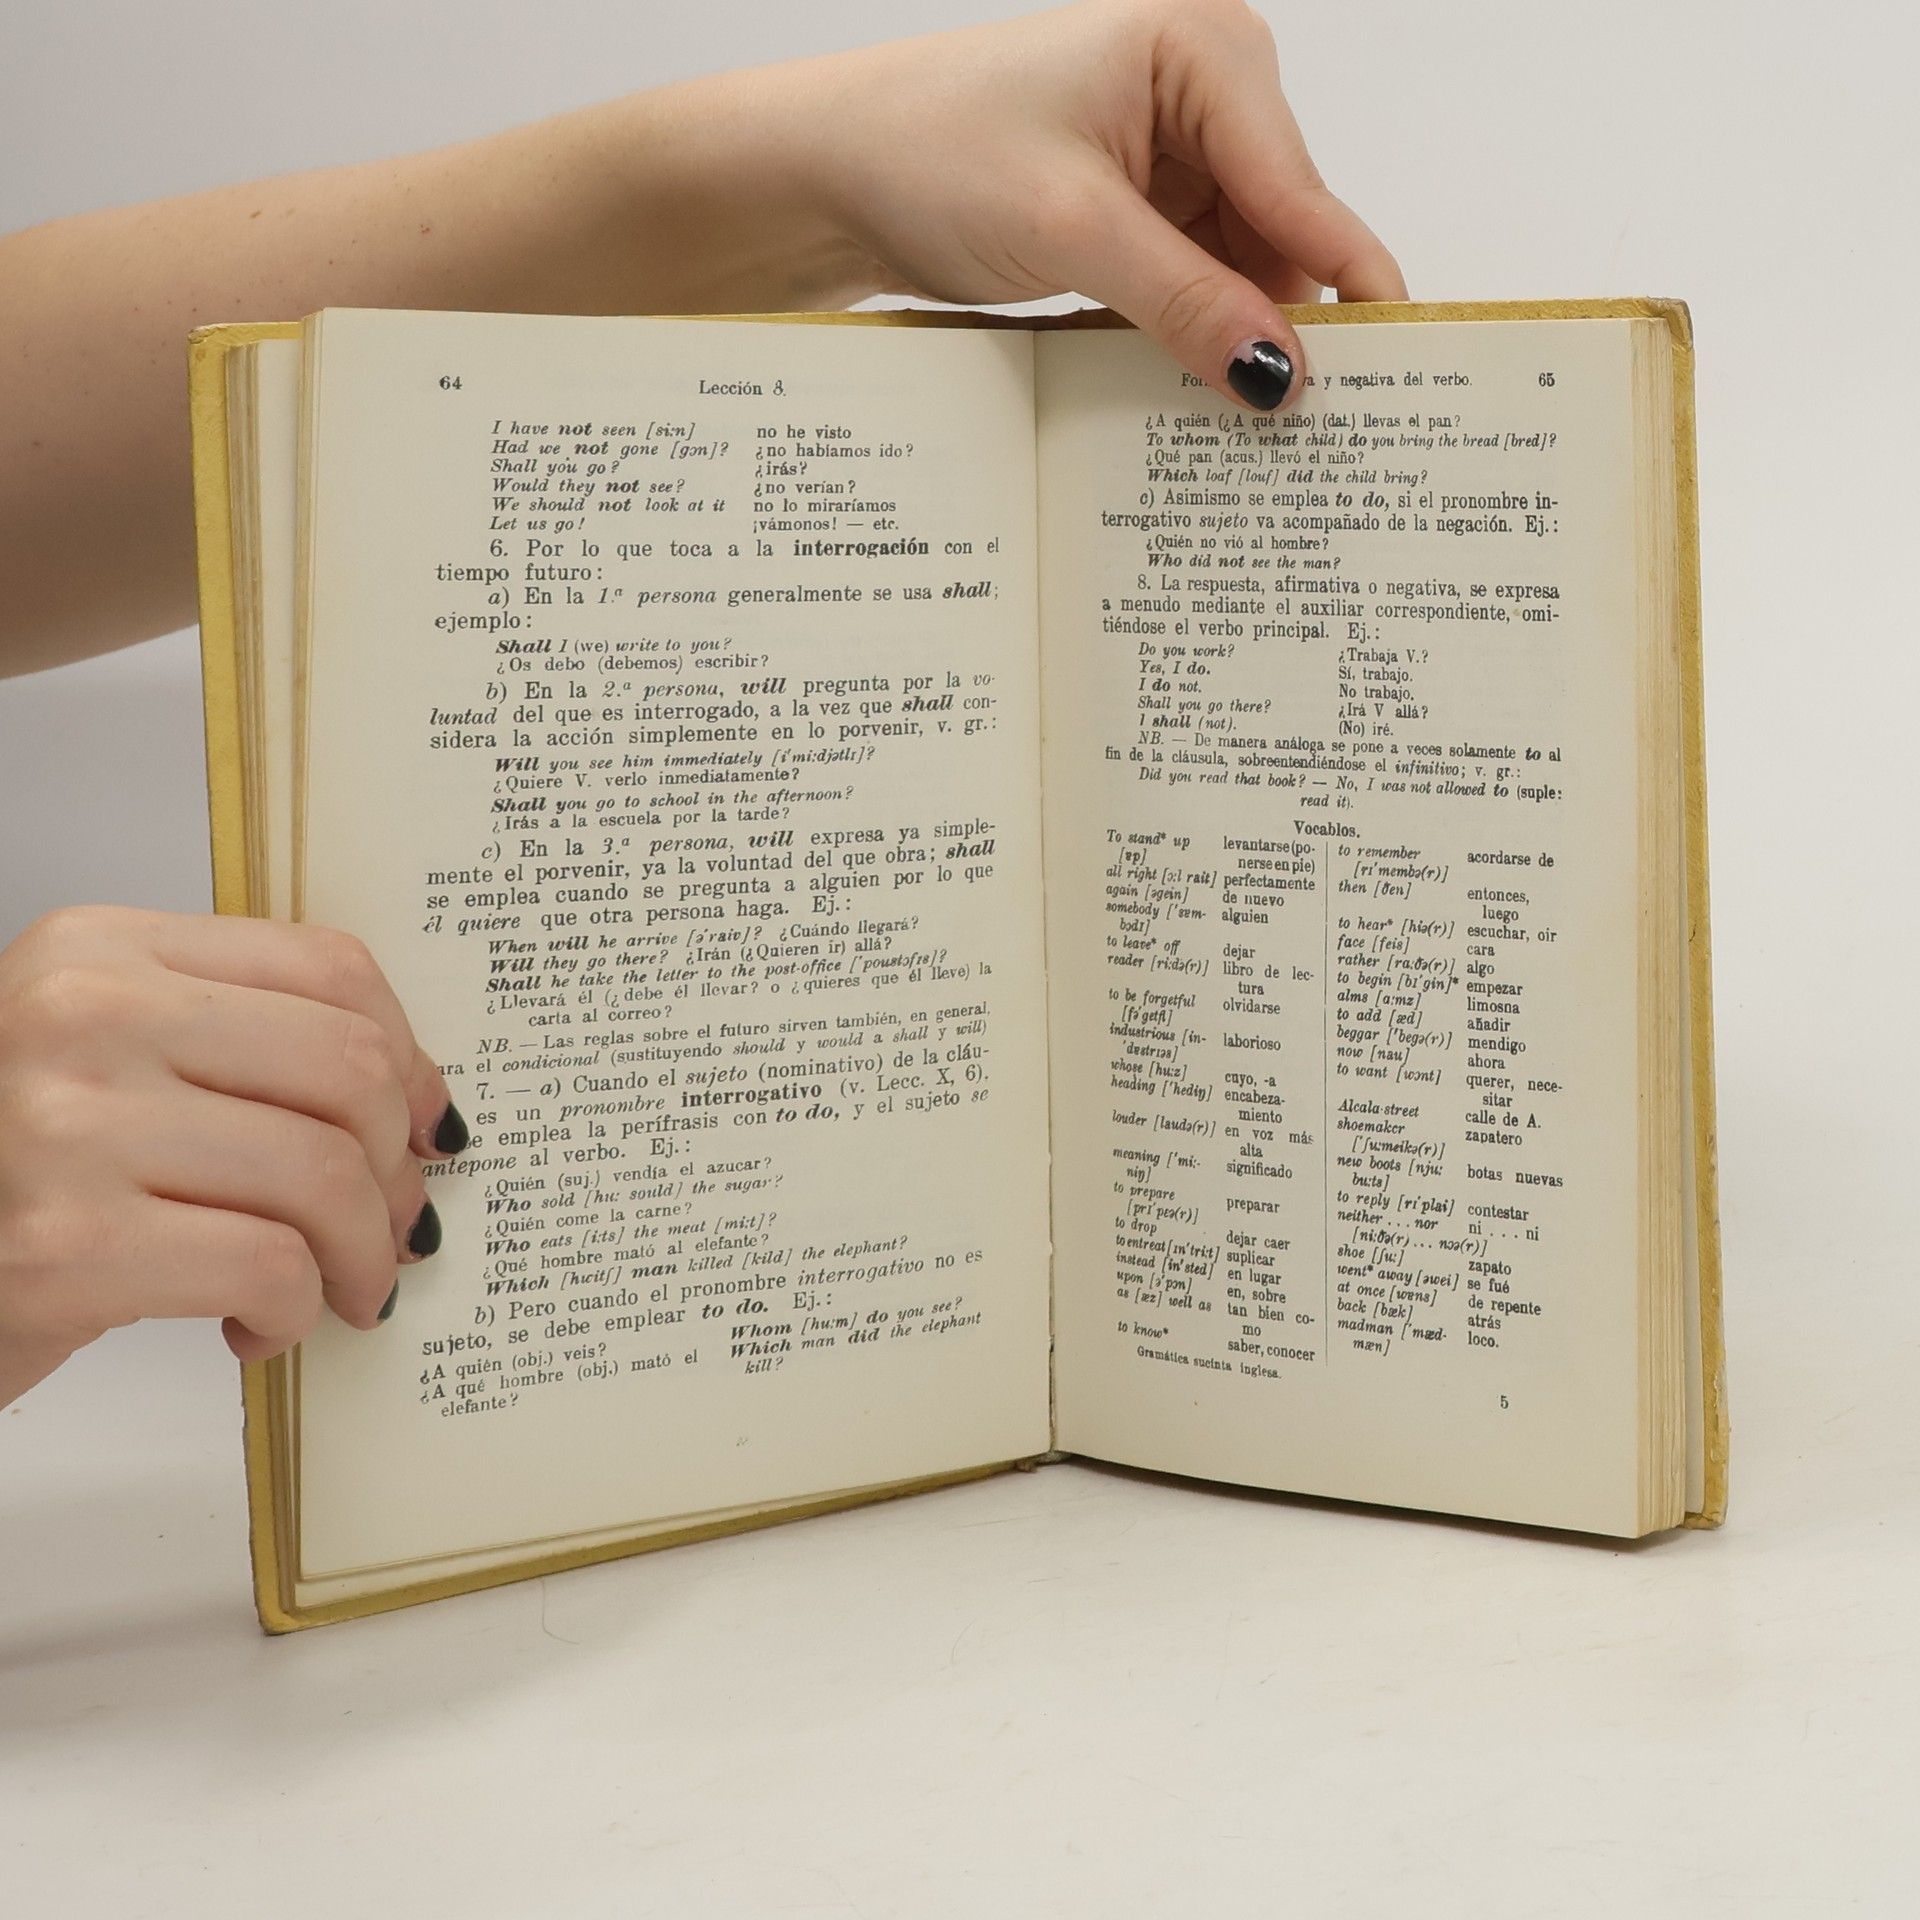 64
Lección 8.
I have not seen [si:n] no he visto
Had we not gone [gɔn]? ¿no habíamos ido?
Shall you go? ¿irás?
Would they not see? ¿no verían?
We should not look at it no lo miraríamos
Let us go! ¡vámonos! — etc.
6. Por lo que toca a la interrogación con el
tiempo futuro:
a) En la 1.ª persona generalmente se usa shall;
ejemplo:
Shall I (we) write to you?
¿Os debo (debemos) escribir?
b) En la 2.ª persona, will pregunta por la vo-
luntad del que es interrogado, a la vez que shall con-
sidera la acción simplemente en lo porvenir, v. gr.:
Will you see him immediately [i'mi:djətlɪ]?
¿Quiere V. verlo inmediatamente?
Shall you go to school in the afternoon?
¿Irás a la escuela por la tarde?
c) En la 3.ª persona, will expresa ya simple-
mente el porvenir, ya la voluntad del que obra; shall
se emplea cuando se pregunta a alguien por lo que
él quiere que otra persona haga. Ej.:
When will he arrive [ə'raiv]? ¿Cuándo llegará?
Will they go there? ¿Irán (¿Quieren ir) allá?
Shall he take the letter to the post-office ['poustɔfɪs]?
¿Llevará él (¿debe él llevar? o ¿quieres que él lleve) la
carta al correo?
NB. — Las reglas sobre el futuro sirven también, en general,
el condicional (sustituyendo should y would a shall y will)
7. — a) Cuando el sujeto (nominativo) de la cláu-
es un pronombre interrogativo (v. Lecc. X, 6),
emplea la perífrasis con to do, y el sujeto se
antepone al verbo. Ej.:
¿Quién (suj.) vendía el azucar?
Who sold [hu: sould] the sugar?
¿Quién come la carne?
Who eats [i:ts] the meat [mi:t]?
¿Qué hombre mató al elefante?
Which [hwitʃ] man killed [kild] the elephant?
b) Pero cuando el pronombre interrogativo no es
sujeto, se debe emplear to do. Ej.:
¿A quién (obj.) veis? Whom [hu:m] do you see?
¿A qué hombre (obj.) mató el Which man did the elephant
elefante? kill?
y negativa del verbo.
65
¿A quién (¿A qué niño) (dat.) llevas el pan?
To whom (To what child) do you bring the bread [bred]?
¿Qué pan (acus.) llevó el niño?
Which loaf [louf] did the child bring?
c) Asimismo se emplea to do, si el pronombre in-
terrogativo sujeto va acompañado de la negación. Ej.:
¿Quién no vió al hombre?
Who did not see the man?
8. La respuesta, afirmativa o negativa, se expresa
a menudo mediante el auxiliar correspondiente, omi-
tiéndose el verbo principal. Ej.:
Do you work? ¿Trabaja V.?
Yes, I do. Sí, trabajo.
I do not. No trabajo.
Shall you go there? ¿Irá V allá?
I shall (not). (No) iré.
NB. — De manera análoga se pone a veces solamente to al
fin de la cláusula, sobreentendiéndose el infinitivo; v. gr.:
Did you read that book? — No, I was not allowed to (suple:
read it).
Vocablos.
To stand* up levantarse (po-
[ɐp] nerse en pie)
all right [ɔ:l rait] perfectamente
again [əgein] de nuevo
somebody ['sɐm- alguien
bɔdɪ]
to leave* off dejar
reader [ri:də(r)] libro de lec-
tura
to be forgetful olvidarse
[fə'getfl]
industrious [in- laborioso
'dɐstrɪəs]
whose [hu:z] cuyo, -a
heading ['hediŋ] encabeza-
miento
louder [laudə(r)] en voz más
alta
meaning ['mi:- significado
niŋ]
to prepare preparar
[prɪ'pɛə(r)]
to drop dejar caer
to entreat [ɪn'tri:t] suplicar
instead [in'sted] en lugar
upon [ə'pɔn] en, sobre
as [æz] well as tan bien co-
mo
to know* saber, conocer
to remember acordarse de
[rɪ'membə(r)]
then [ðen] entonces,
luego
to hear* [hiə(r)] escuchar, oir
face [feis] cara
rather [ra:ðə(r)] algo
to begin [bɪ'gin]* empezar
alms [a:mz] limosna
to add [æd] añadir
beggar ['begə(r)] mendigo
now [nau] ahora
to want [wɔnt] querer, nece-
sitar
Alcala-street calle de A.
shoemaker zapatero
['ʃu:meikə(r)]
new boots [nju: botas nuevas
bu:ts]
to reply [rɪ'plai] contestar
neither ... nor ni ... ni
[ni:ðə(r) ... nɔə(r)]
shoe [ʃu:] zapato
went* away [əwei] se fué
at once [wɐns] de repente
back [bæk] atrás
madman ['mæd- loco.
mæn]
Gramática sucinta inglesa.
5